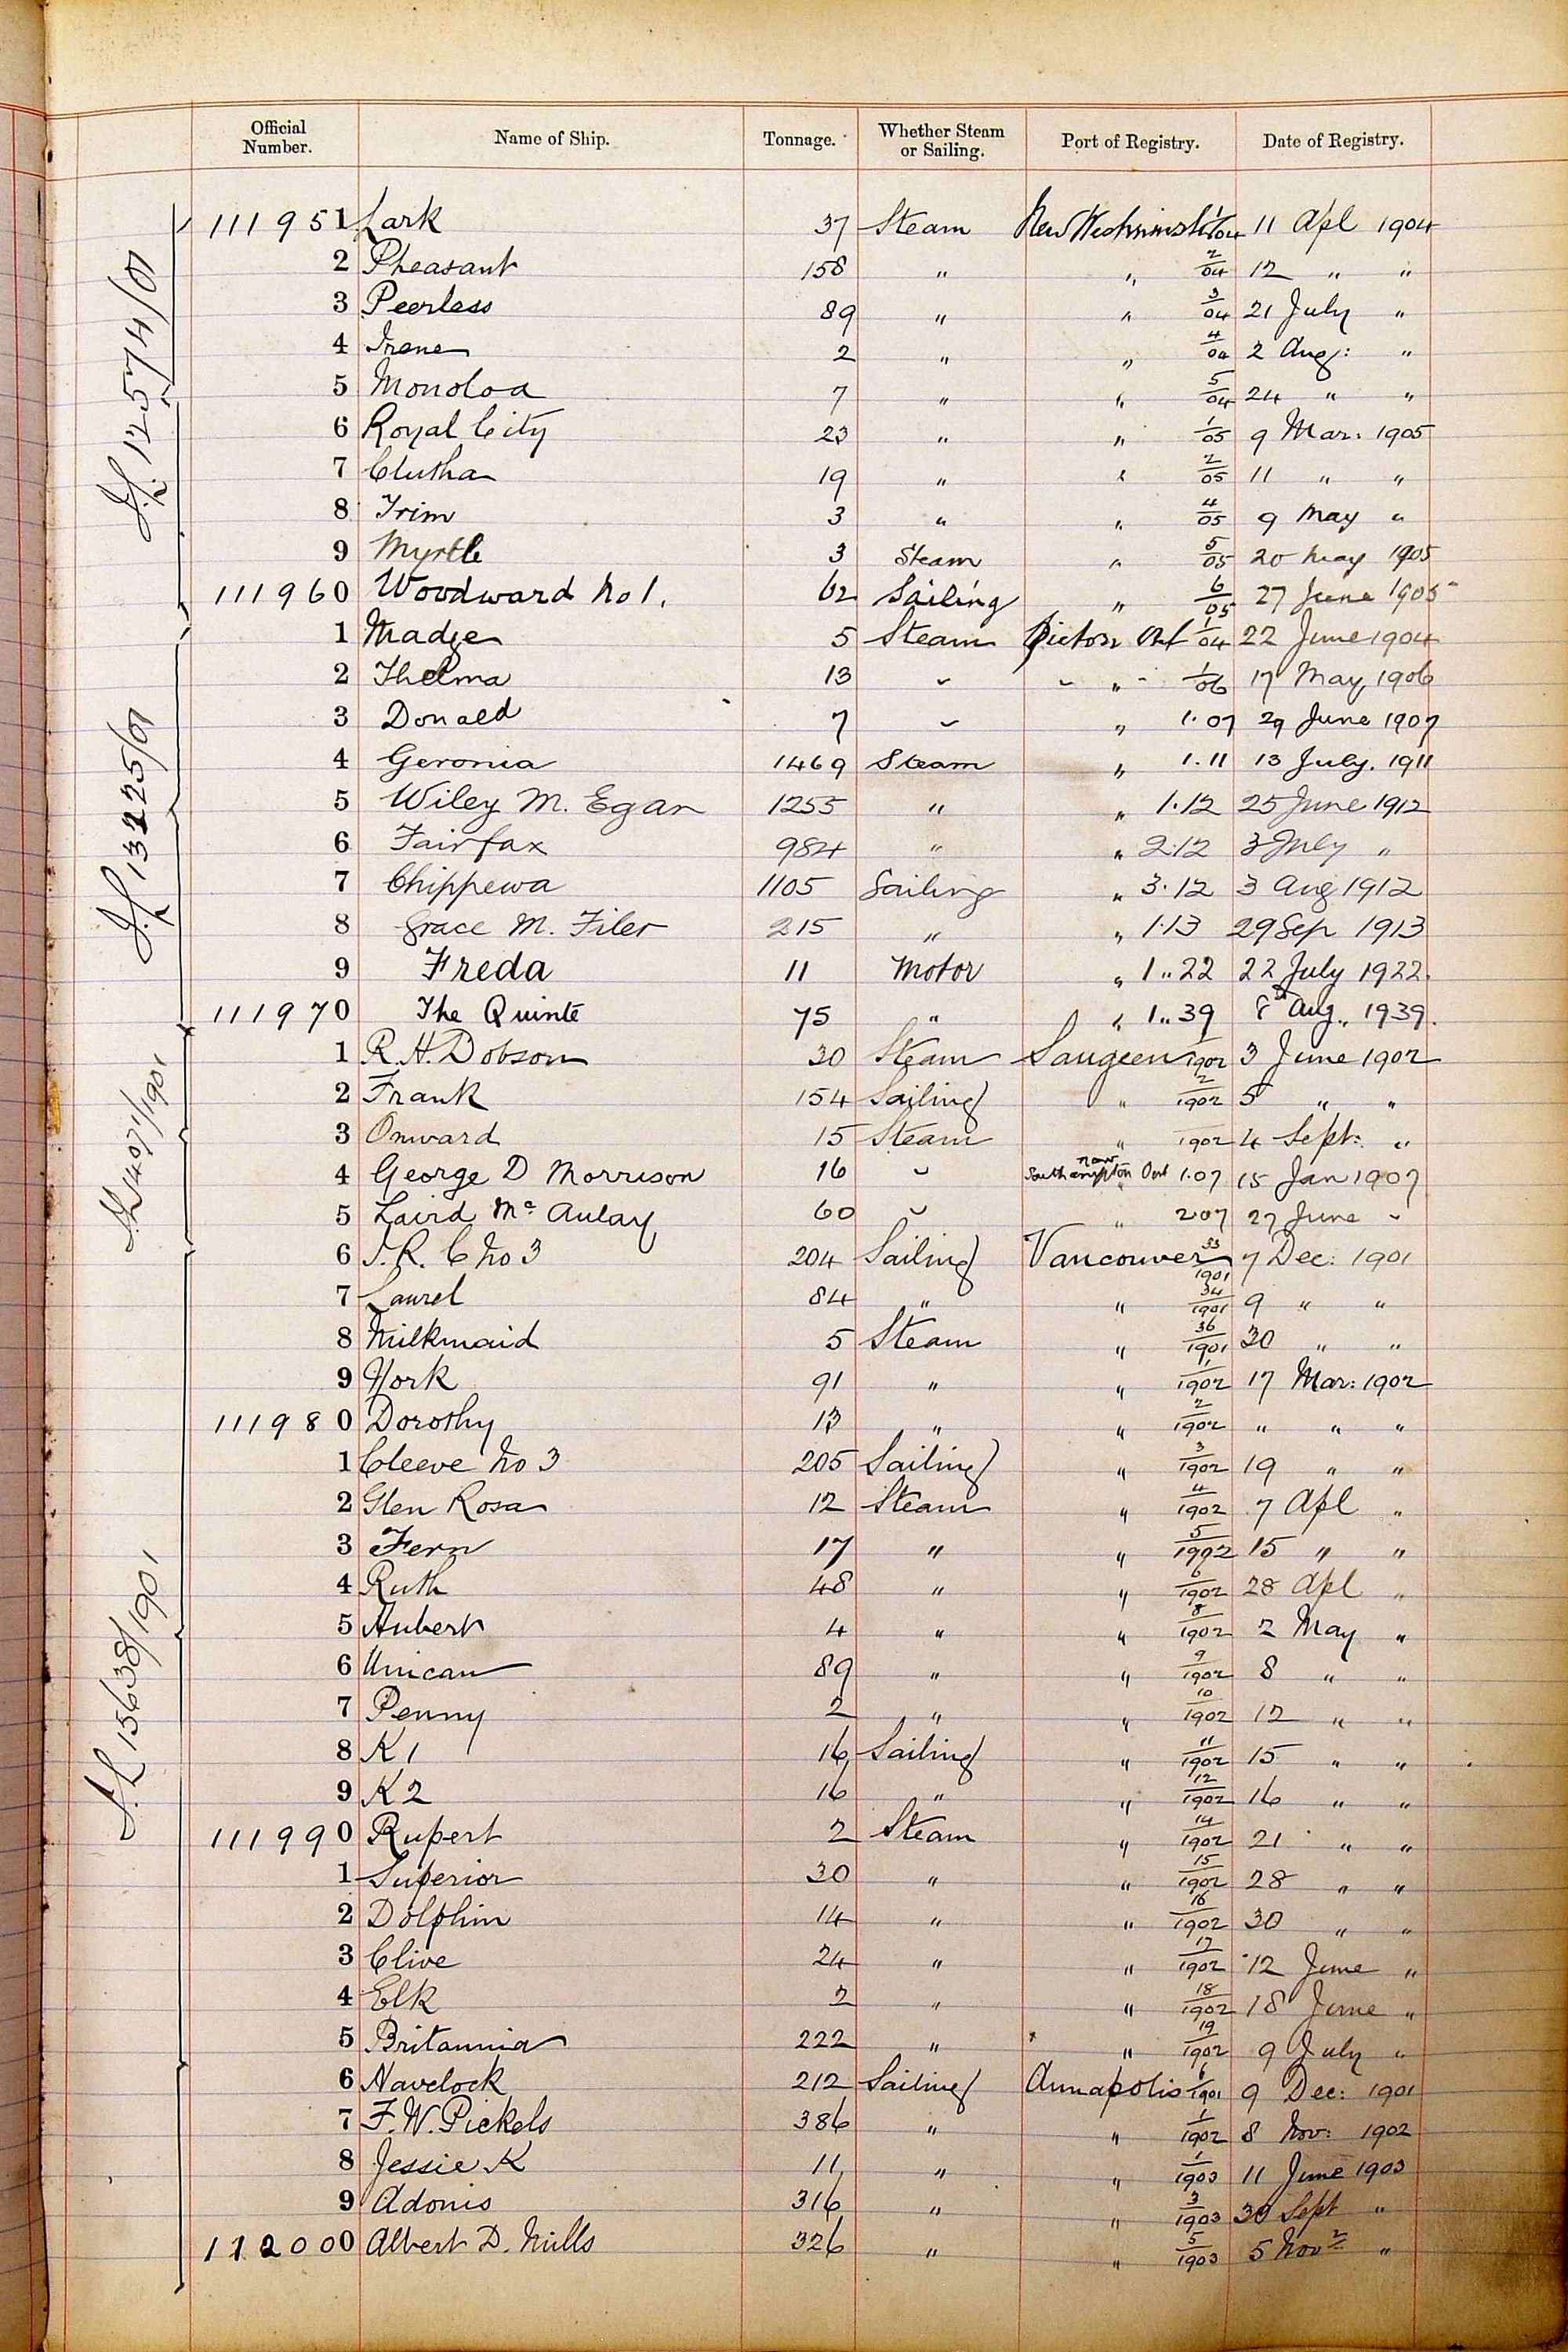 Official Number. Name of Ship. Tonnage. Whether Steam or Sailing. Port of Registry. Date of Registry.
111951 Lark 37 Steam New Westminster 1/04 11 Apl 1904
2 Pheasant 158 " " 2/04 12 " "
3 Peerless 89 " " 3/04 21 July "
4 Irene 2 " " 4/04 2 Aug: "
5 Monoloa 7 " " 5/04 24 " "
6 Royal City 23 " " 1/05 9 Mar: 1905
7 Clutha 19 " " 2/05 11 " "
8 Trim 3 " " 4/05 9 May "
9 Myrtle 3 Steam " 5/05 20 May 1905
111960 Woodward No 1. 62 Sailing " 6/05 27 June 1905
1 Madge 5 Steam Picton Ont 1/04 22 June 1904
2 Thelma 13 " " 1/06 17 May, 1906
3 Donald 7 " " 1.07 29 June 1907
4 Geronia 1469 Steam " 1.11 13 July. 1911
5 Wiley M. Egan 1255 " " 1.12 25 June 1912
6 Fairfax 984 " " 2.12 3 July "
7 Chippewa 1105 Sailing " 3.12 3 Aug 1912
8 Grace M. Filer 215 " " 1.13 29 Sep 1913
9 Freda 11 Motor " 1..22 22 July 1922.
111970 The Quinte 75 " " 1..39 8th Aug., 1939.
1 R. H. Dobson 30 Steam Saugeen 1/1902 3 June 1902
2 Frank 154 Sailing " 2/1902 5 " "
3 Onward 15 Steam " 1902 4 Sept: "
4 George D Morrison 16 " now Southampton Ont 1.07 15 Jan 1907
5 Laird Mc Aulay 60 " " 2.07 27 June "
6 I. R. C No 3 204 Sailing Vancouver 33/1901 7 Dec: 1901
7 Laurel 84 " " 34/1901 9 " "
8 Milkmaid 5 Steam " 36/1901 30 " "
9 York 91 " " 1/1902 17 Mar: 1902
111980 Dorothy 13 " " 2/1902 " " "
1 Cleeve No 3 205 Sailing " 3/1902 19 " "
2 Glen Rosa 12 Steam " 4/1902 7 Apl "
3 Fern 17 " " 5/1902 15 " "
4 Ruth 48 " " 6/1902 28 Apl "
5 Hubert 4 " " 8/1902 2 May "
6 Unican 89 " " 9/1902 8 " "
7 Penny 2 " " 10/1902 12 " "
8 K 1 16 Sailing " 11/1902 15 " "
9 K 2 16 " " 12/1902 16 " "
111990 Rupert 2 Steam " 14/1902 21 " "
1 Superior 30 " " 15/1902 28 " "
2 Dolphin 14 " " 16/1902 30 " "
3 Clive 24 " " 17/1902 12 June "
4 Elk 2 " " 18/1902 18 June "
5 Britannia 222 " " 19/1902 9 July "
6 Havelock 212 Sailing Annapolis 6/1901 9 Dec: 1901
7 F. W. Pickels 386 " " 1/1902 8 Nov: 1902
8 Jessie K 11 " " 1/1903 11 June 1903
9 Adonis 316 " " 3/1903 30 Sept "
112000 Albert D. Mills 326 " " 5/1903 5 Novr "
12574/01
13225/01
14071/1901
15638/1901